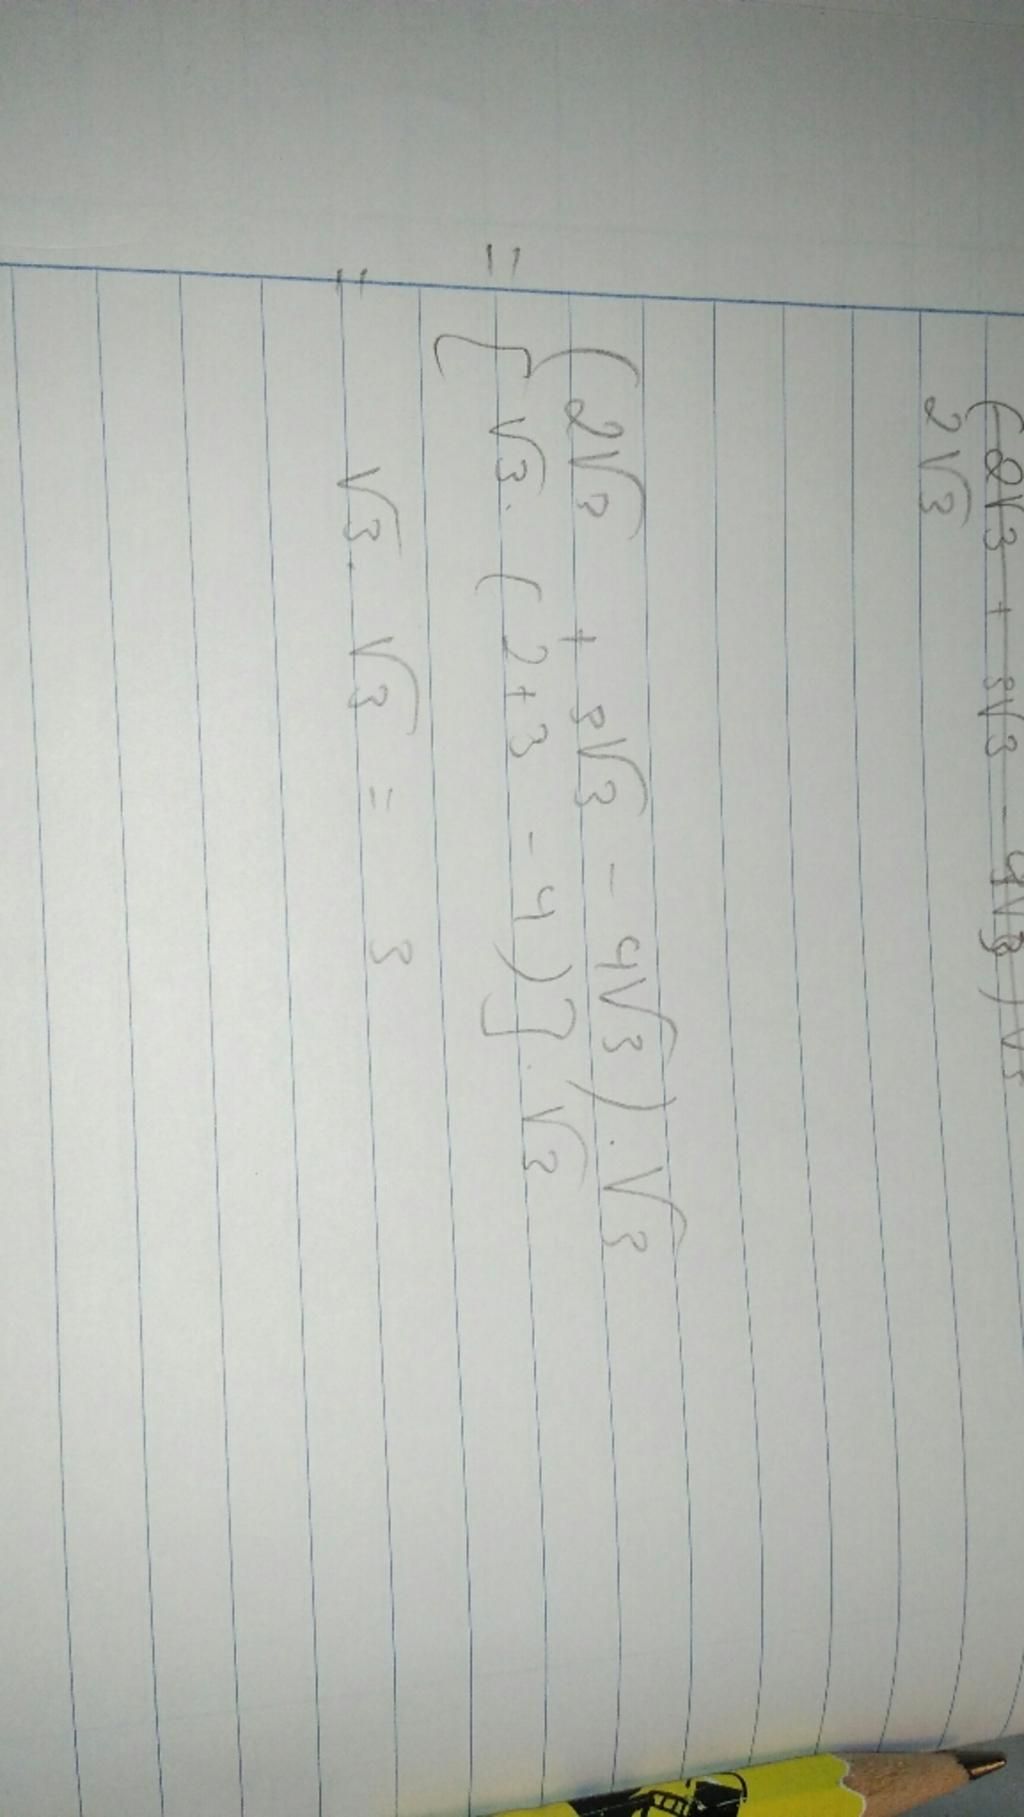 (2√3 + 3√3 - 4√3) √3
2√3
(2√3 + 3√3 - 4√3) . √3
= [√3 . (2+3 - 4)] . √3
= √3 . √3 = 3